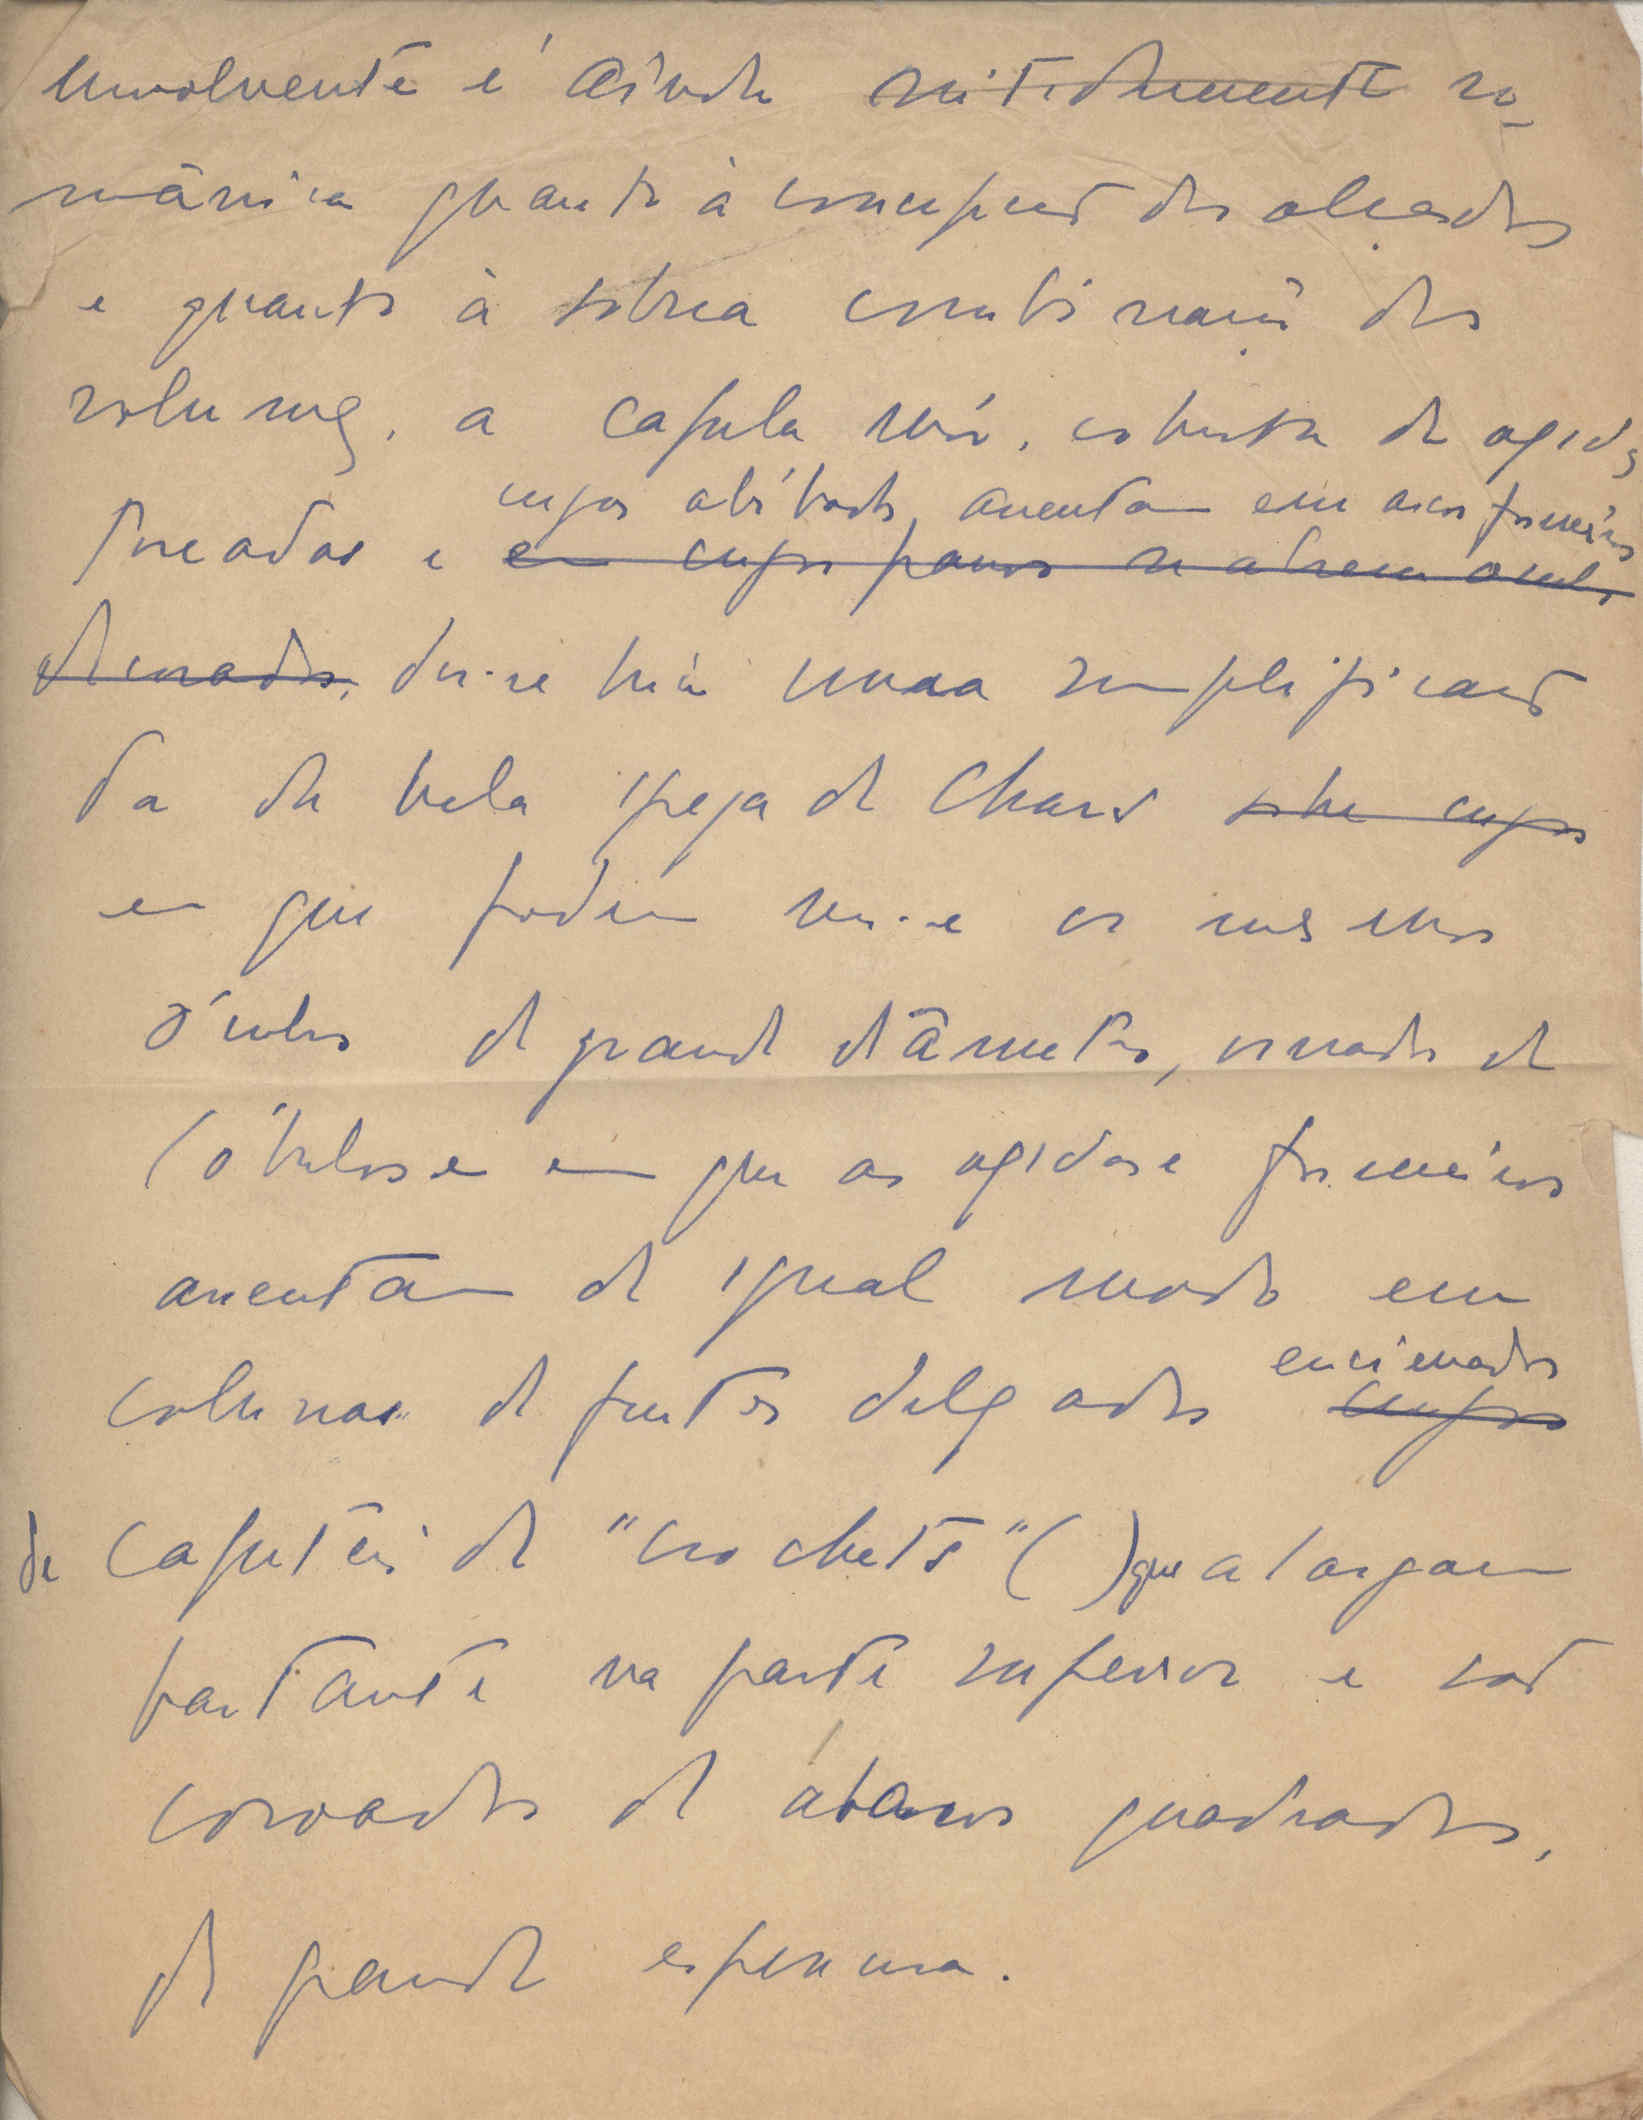 envolvente é ainda nitidamente ro-
mânica quanto à concepção dos alçados
e quanto à sóbria combinação dos
volumes, a capela mór, coberta de ogivas
cujas abóbadas assentam em arcos formeiros
toreadas e em cujos panos se abrem ocul,
dir-se-hia uma simplificação
da bela igreja de Chars sobre cujos
em que podem ver-se os mesmos
óculos de grande diâmetro, ornados de
lóbulos e em que as ogivas e formeiros
assentam de igual modo em
encimados
colunas de fustes delgados cujos
de capitéis de "crochets" ( ) que alargam
bastante na parte superior e são
coroados de ábacos quadrados,
de grande espessura.